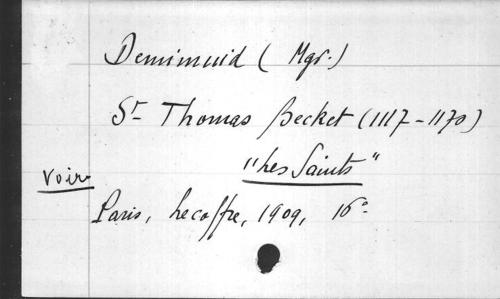 Demimuid (Mgr.)
St Thomas Becket (1117-1170)
"Les Saints"
Voir
Paris, Lecoffre, 1909, 16°